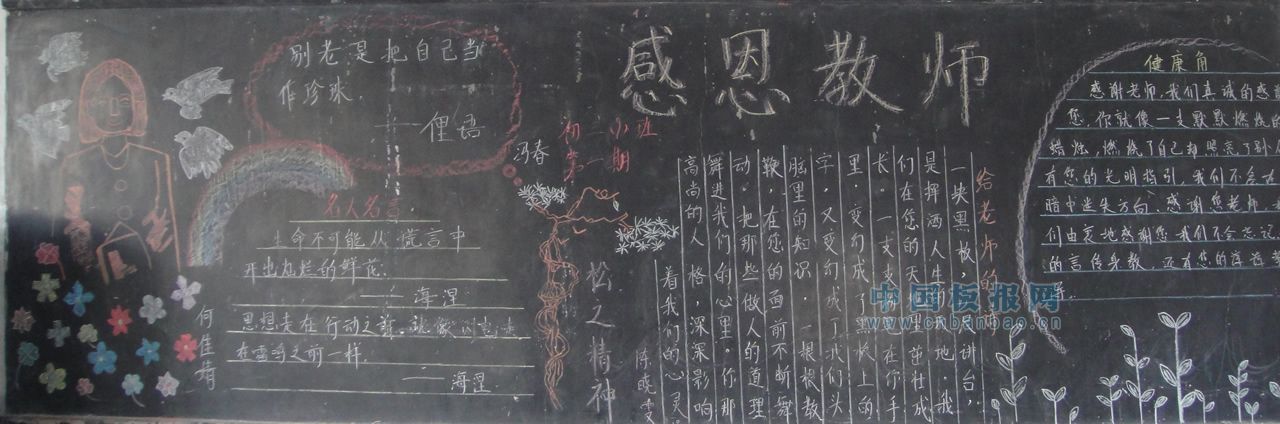 感恩教师
别老是把自己当
作珍珠.
——俚语
初一小班
第一期
名人名言
生命不可能从谎言中
开出灿烂的鲜花.
——海涅
思想走在行动之前,就像闪电走
在雷鸣之前一样.
——海涅
何佳
松之精神
给老师的
一块黑板,讲台,
是挥洒人生的地,我
们在您的天里茁壮成
长.一支支在你手
里,变幻成了黑板上的
字,又变幻成了我们头
脑里的知识.一根根教
鞭,在您的面前不断舞
动,把那些做人的道理
舞进我们的心里.你那
高尚的人格,深深影响
着我们的心灵.
陈晓雯
健康角
感谢老师,我们真诚的感谢
您,你就像一支默默燃烧的
蜡烛,燃烧了自己却照亮了别人
有您的光明指引,我们不会在
暗中迷失方向,感谢您老师
们由衷地感谢您我们不会忘记
的言传身教,还有您的谆谆
中国板报网
www.cnbanbao.cn